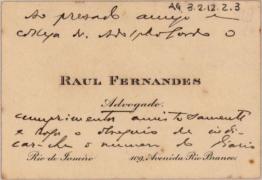 AG 3.2.12.2.3
Ao presado amigo e
collega Dr. Adolpho Gordo o
RAUL FERNANDES
Advogado.
cumprimentos amistosamente
e roga o obsequio de indi
car-lhe o numero do Diario
Rio de Janeiro 109, Avenida Rio Branco